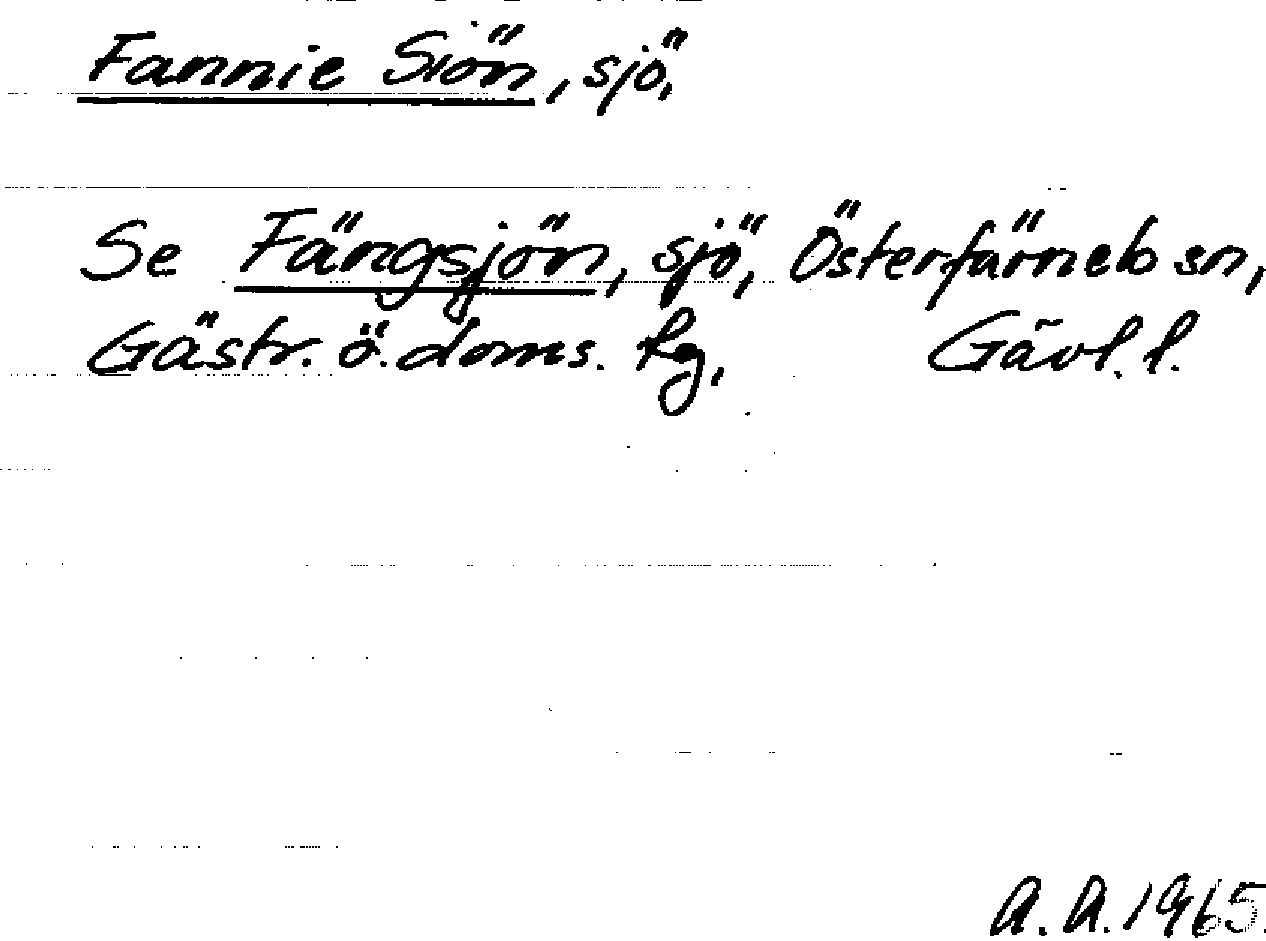 Fannie Siön, sjö,
Se Fängsjön, sjö, Österfärnebo sn,
Gästr. ö. doms. fg, Gävl. l.
A. A. 1965.